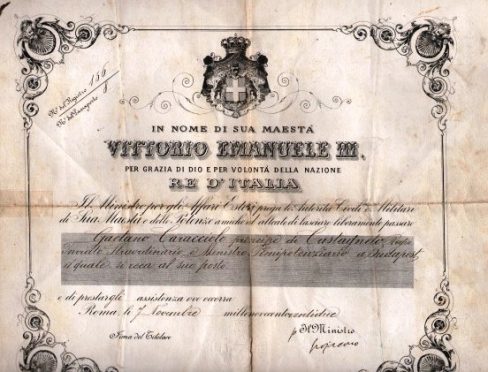 N.º del Registro 156
N.º del Passaporto
IN NOME DI SUA MAESTÀ
VITTORIO EMANUELE III.
PER GRAZIA DI DIO E PER VOLONTÀ DELLA NAZIONE
RE D'ITALIA
Il Ministro per gli Affari Esteri prega le Autorità Civili e Militari
di Sua Maestà e delle Potenze amiche ed alleate di lasciare liberamente passare
Gaetano Caracciolo principe di Castagneto,
inviato Straordinario e Ministro Plenipotenziario a Budapest,
il quale si reca al suo posto
e di prestargli assistenza ove occorra
Roma li 7 Novembre millenovecento
Firma del Titolare
p Il Ministro